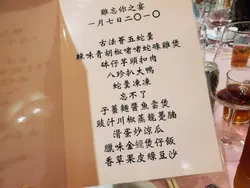 難忘你之宴
一月七日二〇一〇
古法薈五蛇羹
辣味青胡椒啫啫蛇碌雞煲
砵仔芋頭扣肉
八珍扒大鴨
蛇羹凍凍
忘不了
子薑麵醬魚雲煲
豉汁川椒蒸龍躉腩
滑蛋炒涼瓜
臘味金鑊煲仔飯
香草果皮綠豆沙